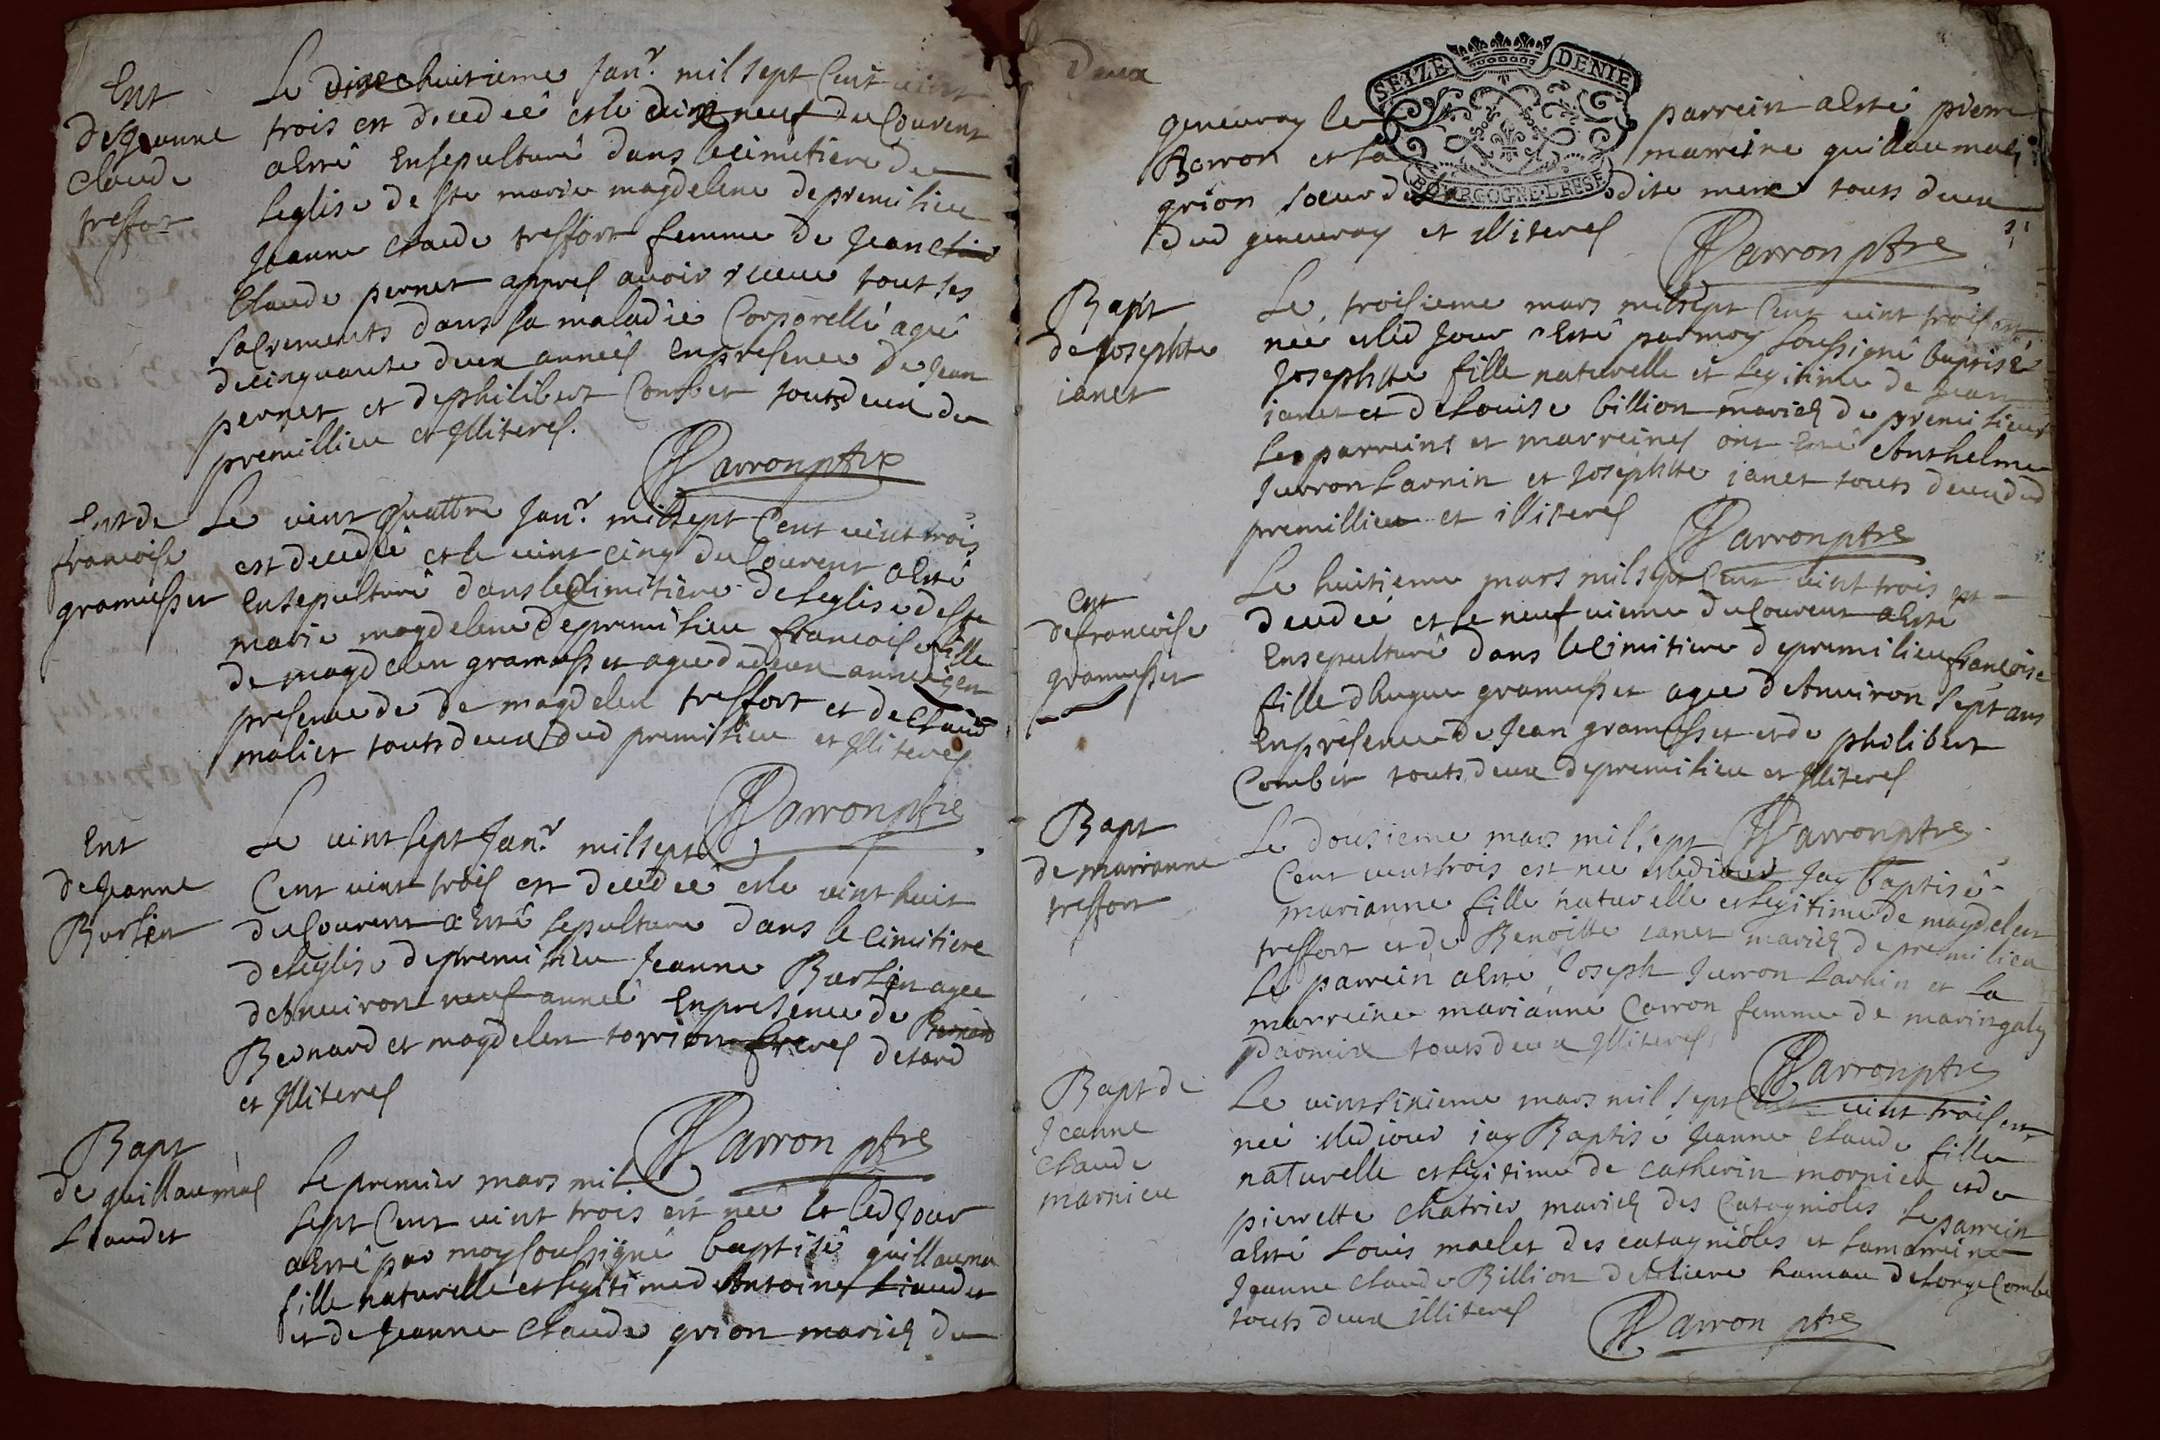 Ent
de Jeanne
Claude
treffort
Le dixechuitieme Janr. mil sept Cent vint
trois est decedeé et le dixneuf du Courent
aEtté Ensepulturé dans le cimitiere de
Leglise de Ste marie magdelene de premilieu
Jeanne Claude treffort femme de Jean
Claude pernet appres avoir receue tout ses
sacrements dans sa maladie Corporelle ageé
de cinquante deux anneés Enpresence de Jean
pernet et de philibert Combet touts deux de
premillieu et Illiteres.
Parron ptre
Ent de
francoise
gramusset
Le vint quattre Janr. milsept Cent vint trois
est decedeé et le vint cinq du Courent aEtté
Ensepulturé dans le Cimitiere de Leglise de Ste
marie magdelene de premilieu francoise fille
de magdelen gramusset agee de deux anneés en
presence de de magdelen treffort et de Claude
maliet touts deux dud premilieu et Illiteres.
Parron ptre
Ent
de Jeanne
Burlet
Le vint sept Janr. mil sept
Cent vint trois est decedeé et le vint huit
du Courent a Etté sepulture dans le cimitiere
de leglise de premilieu Jeanne agee
dEnviron neuf anneé Enpresence de
Bernard et magdelen torrion freres de tard
et Illiteres
Parron ptre
Bapt
de guillaumas
Liaudet
Le premier mars mil
sept Cent vint trois est neé et led Jour
aEtté par moy soussigné baptisé guillauma
fille naturelle et legitime de Antoine Liaudet
et de Jeanne Claude grion mariez de
Deux
SEIZE DENIE
BOURGOGNE BRESSE
genevray le parrein aEtté pierre
Barron et la marreine guillaumaz
grion soeur de dite mere touts deux
dud genevray et illiteres
Parron ptre
Bapt
de Josephte
ianet
Le troisieme mars milsept Cent vint trois est
neé et led Jour aEtté par moy soussigné baptisé
Josephte fille naturelle et legitime de Jean
ianet et de Louise billion mariez de premilieu
Les parreins et marreines ont Etté Anthelme
Jurron Larnin et Josephte ianet touts deux dud
premillieu et illiteres
Parron ptre
Ent
de francoise
gramusset
Le huitieme mars mil sept Cent vint trois est
decedeé et le neufvieme du Courent aEtté
Ensepulturé dans le Cimitiere de premilieu francoise
fille dhugue gramusset agee dEnviron sept ans
Enpresence de Jean gramusset et de philibert
Combet touts deux de premilieu et Illiteres
Parron ptre
Bapt
de marianne
treffort
Le dousieme mars mil sept
Cent vint trois est neé et led iour Jay baptisé
marianne fille naturelle et legitime de magdelen
treffort et de Benoitte ianet mariez de premilieu
Le parrein aEtté Joseph Jurron Larnin et La
marreine marianne Carron femme de marin galy
touts deux Illiteres
Parron ptre
Bapt de
Jeanne
Claude
marnieu
Le vint sixieme mars mil sept Cent vint trois est
neé et led iour iay Baptisé Jeanne Claude fille
naturelle et legitime de Catherin mornieu et de
pierrette Chatrier mariez des Catagnioles Le parrein
aEtté Louis maclet des catagnioles et La marreine
Jeanne Claude Billion hamau de Longe Combe
touts deux illiteres
Parron ptre